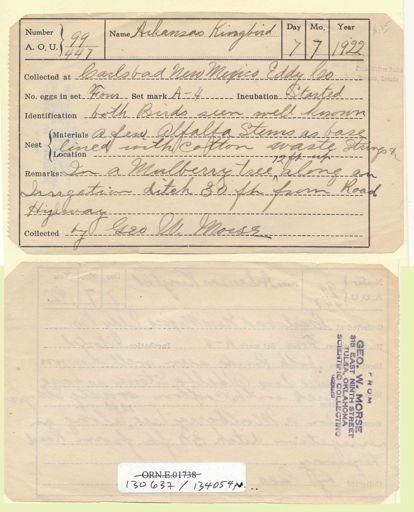 Number 99 Name Arkansas Kingbird Day Mo. Year
A. O. U. 447 7 7 1922
Collected at Carlsbad New Mexico Eddy Co
No. eggs in set Four Set mark A-4 Incubation Started
Identification both Birds seen well known
Nest Materials a few Alfalfa Stems as base
Location lined with Cotton waste Strings &
12 ft up
Remarks: In a Mulberry Tree along an
Irrigation ditch 30 ft from Road
Highway
Collected by Geo W. Morse
FROM
GEO. W. MORSE
318 EAST NINTH STREET
TULSA, OKLAHOMA
SCIENTIFIC COLLECTING
ORN.E.01738
130637 / 134054N.